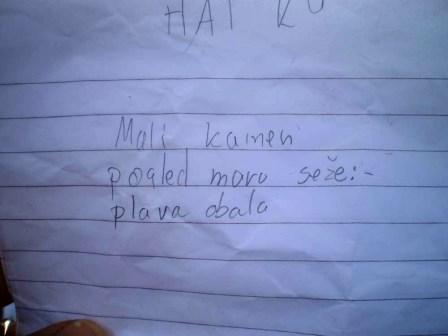 HAI KU
Mali kamen
pogled moru seže:-
plava obala